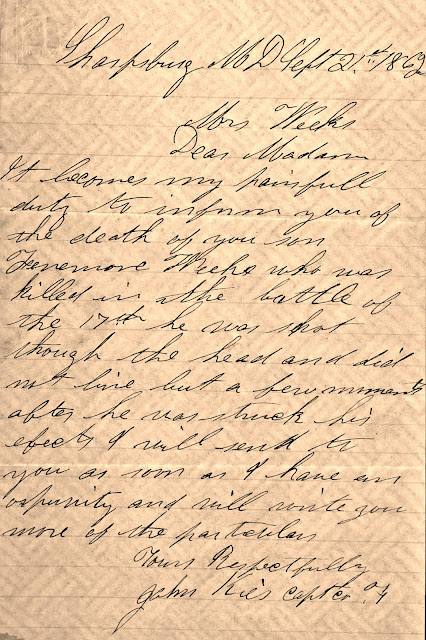 Sharpsburg MD Sept 21st 1862
Mrs Weeks
Dear Madam
It becomes my painfull
duty to inform you of
the death of you son
Fenemore Weeks who was
killed in the battle of
the 17th he was shot
though the head and did
not live but a few moments
after he was struck his
efects I will send to
you as soon as I have an
oppunity and will write you
more of the particulars
Yours Respectfully
John Kies Capt Co